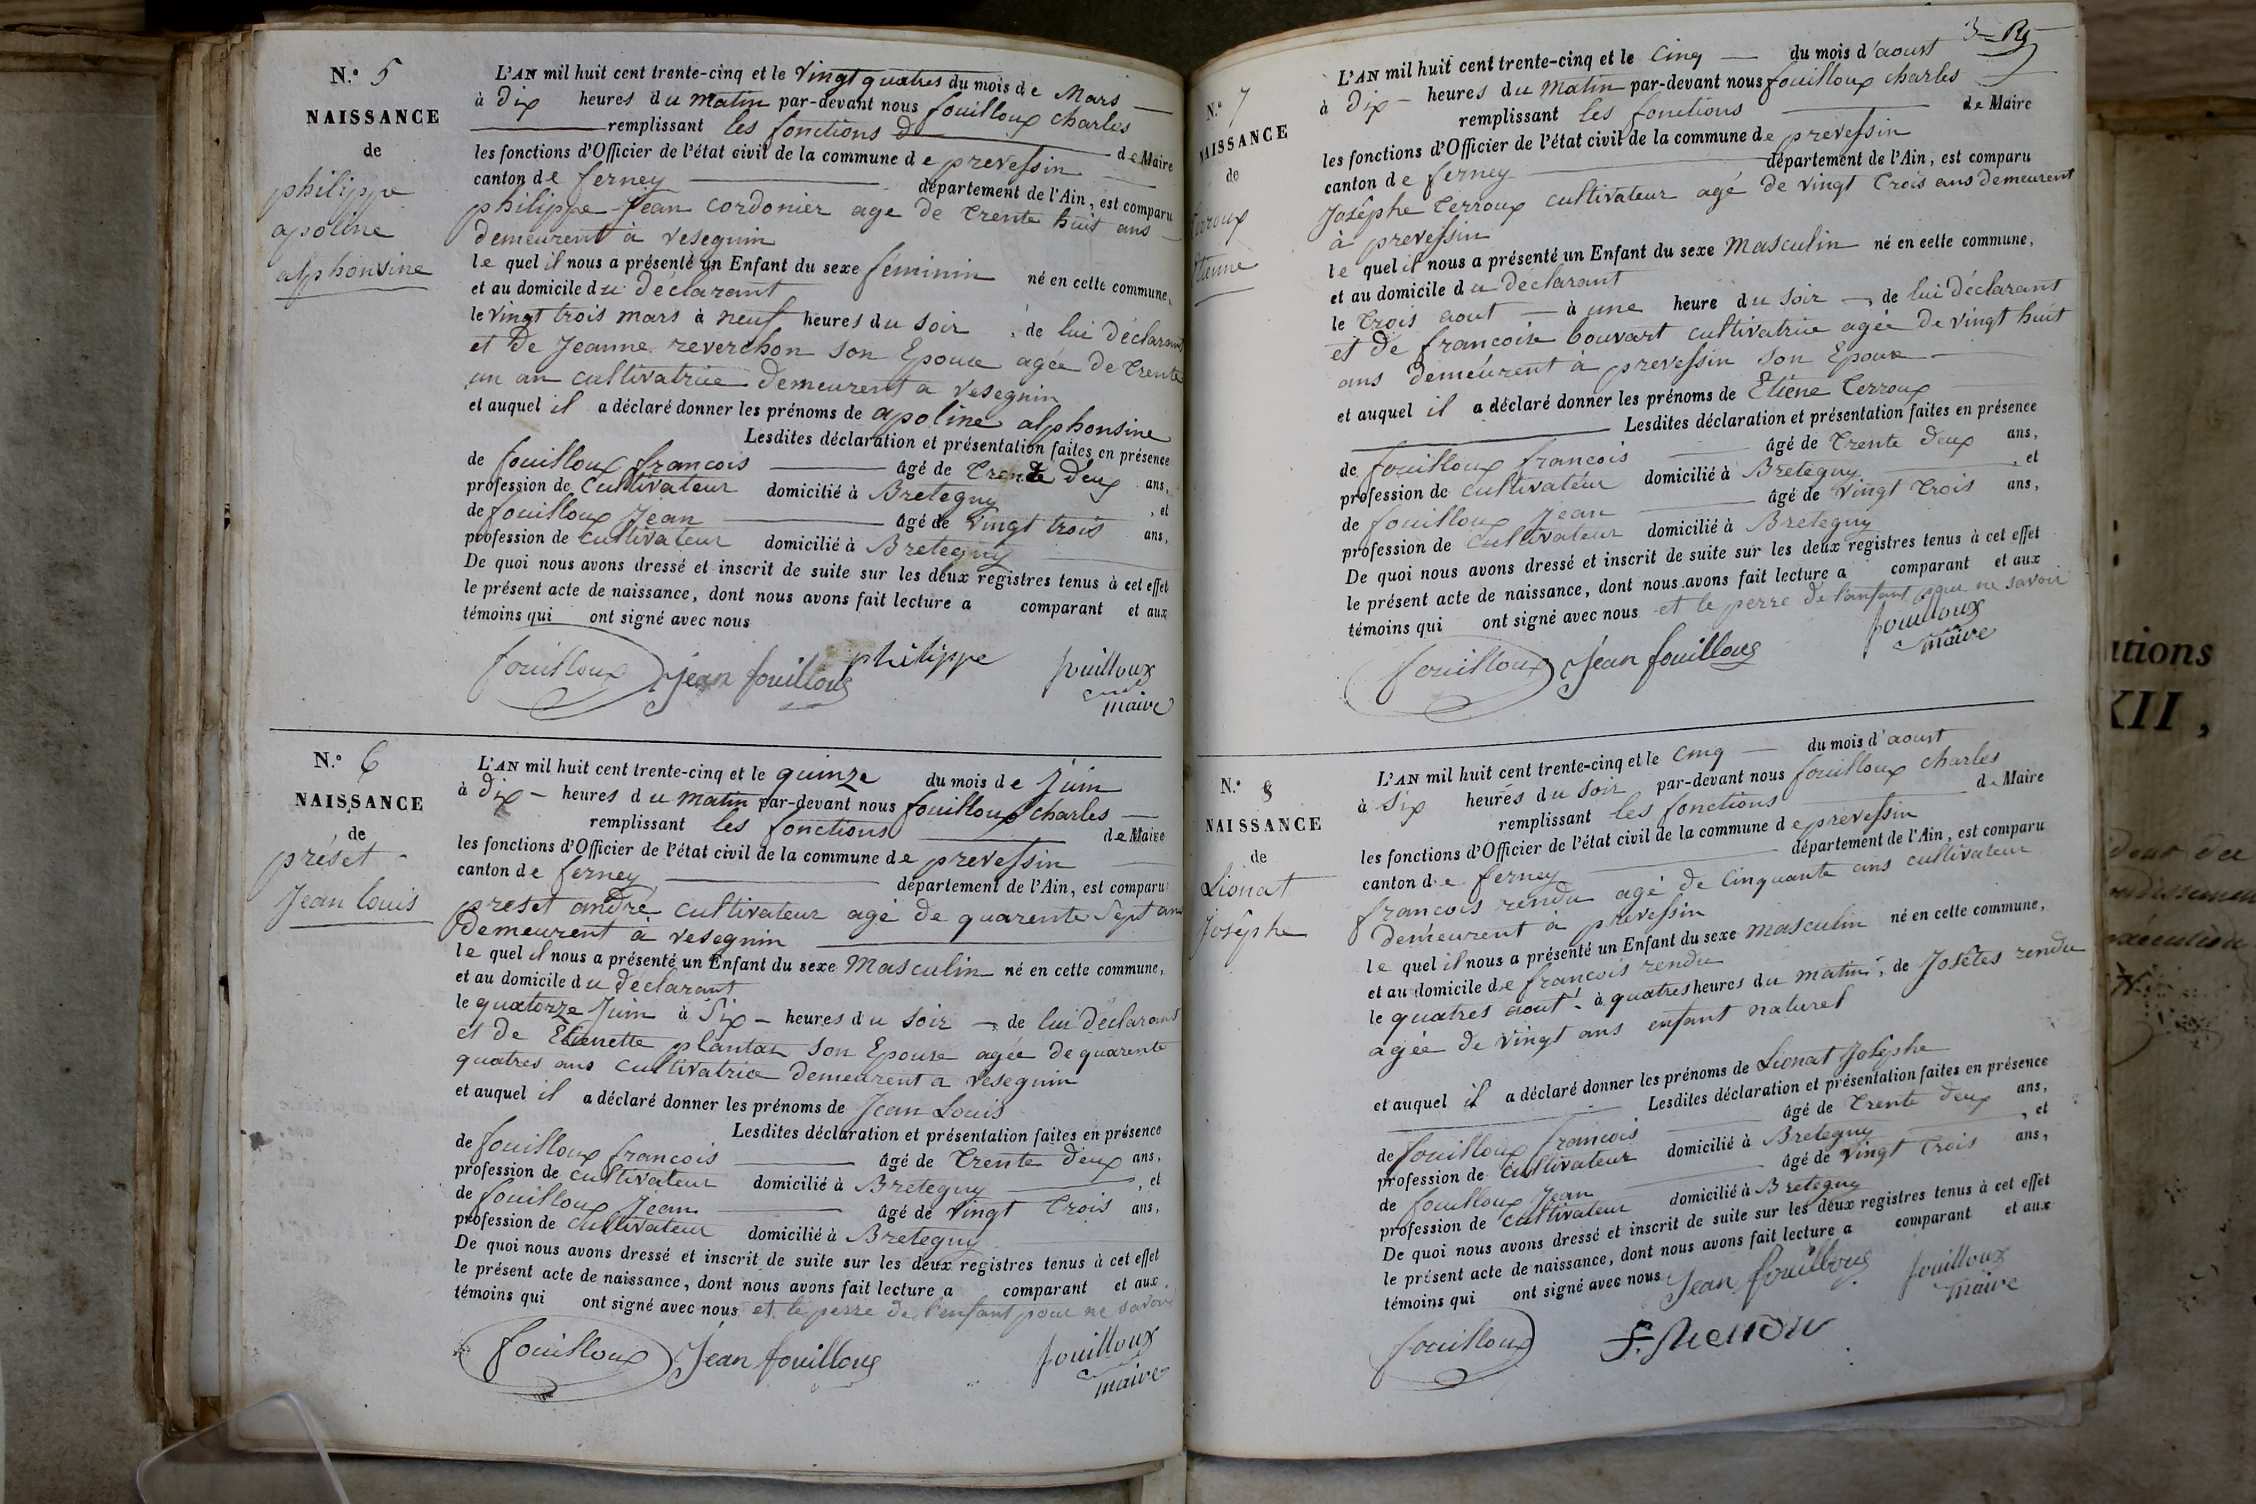 N.° 5
NAISSANCE
de
philippe
apoline
alphonsine
L'AN mil huit cent trente-cinq et le vingt quatres du mois de Mars
à dix heures du matin par-devant nous fouilloux charles
remplissant les fonctions d de Maire
les fonctions d'Officier de l'état civil de la commune de prevessin
canton de ferney département de l'Ain, est comparu
philippe jean cordonier age de trente huit ans
demeurent à vesegnin
le quel il nous a présenté un Enfant du sexe féminin né en cette commune,
et au domicile du déclarant
le vingt trois mars à neuf heures du soir, de lui déclarant
et de jeanne reverchon son Epouse agée de trente
un an cultivatrice demeurent a vesegnin
et auquel il a déclaré donner les prénoms de apoline alphonsine
Lesdites déclaration et présentation faites en présence
de fouilloux francois âgé de trente deux ans,
profession de cultivateur domicilié à Bretegny, et
de fouilloux jean âgé de vingt trois ans,
profession de cultivateur domicilié à Bretegny
De quoi nous avons dressé et inscrit de suite sur les deux registres tenus à cet effet
le présent acte de naissance, dont nous avons fait lecture a comparant et aux
témoins qui ont signé avec nous
fouilloux jean fouilloux philippe fouilloux
maire
N.° 6
NAISSANCE
de
préset
jean louis
L'AN mil huit cent trente-cinq et le quinze du mois de juin
à dix heures du matin par-devant nous fouilloux charles
remplissant les fonctions de Maire
les fonctions d'Officier de l'état civil de la commune de prevessin
canton de ferney département de l'Ain, est comparu
preset andré cultivateur agé de quarente sept ans
demeurent à vesegnin
le quel il nous a présenté un Enfant du sexe Masculin né en cette commune,
et au domicile du déclarant
le quatorze juin à six heures du soir, de lui déclarant
et de Etienette plantan son Epouse agée de quarente
quatres ans cultivatrice demeurent a vesegnin
et auquel il a déclaré donner les prénoms de Jean Louis
Lesdites déclaration et présentation faites en présence
de fouilloux francois âgé de trente deux ans,
profession de cultivateur domicilié à Bretegny, et
de fouilloux jean âgé de vingt trois ans,
profession de cultivateur domicilié à Bretegny
De quoi nous avons dressé et inscrit de suite sur les deux registres tenus à cet effet
le présent acte de naissance, dont nous avons fait lecture a comparant et aux
témoins qui ont signé avec nous et le perre de l'enfant pour ne savoir
fouilloux jean fouilloux fouilloux
maire
N.° 7
NAISSANCE
de
Terroux
Etienne
L'AN mil huit cent trente-cinq et le cinq du mois d'aoust
à dix heures du matin par-devant nous fouilloux charles
remplissant les fonctions de Maire
les fonctions d'Officier de l'état civil de la commune de prevessin
canton de ferney département de l'Ain, est comparu
Josêphe terroux cultivateur agé de vingt trois ans demeurent
à prevessin
le quel il nous a présenté un Enfant du sexe Masculin né en cette commune,
et au domicile du déclarant
le trois aout à une heure du soir, de lui déclarant
et de francoise bouvart cultivatrice agée de vingt huit
ans demeurent à prevessin son Epouse
et auquel il a déclaré donner les prénoms de Etiene terroux
Lesdites déclaration et présentation faites en présence
de fouilloux francois âgé de trente deux ans,
profession de cultivateur domicilié à Bretegny, et
de fouilloux jean âgé de vingt trois ans,
profession de cultivateur domicilié à Bretegny
De quoi nous avons dressé et inscrit de suite sur les deux registres tenus à cet effet
le présent acte de naissance, dont nous avons fait lecture a comparant et aux
témoins qui ont signé avec nous et le perre de l'anfant pour ne savoir
fouilloux jean fouilloux fouilloux
maire
N.° 8
NAISSANCE
de
Lionat
Josêphe
L'AN mil huit cent trente-cinq et le cinq du mois d'aoust
à six heures du soir par-devant nous fouilloux charles
remplissant les fonctions de Maire
les fonctions d'Officier de l'état civil de la commune de prevessin
canton de ferney département de l'Ain, est comparu
francois rendu agé de cinquante ans cultivateur
demeurent à prevessin
le quel il nous a présenté un Enfant du sexe masculin né en cette commune,
et au domicile de francois rendu
le quatres aout à quatres heures du matin, de Josêtes rendu
agée de vingt ans enfant naturel
et auquel il a déclaré donner les prénoms de Lionat Josêphe
Lesdites déclaration et présentation faites en présence
de fouilloux francois âgé de trente deux ans,
profession de cultivateur domicilié à Bretegny, et
de fouilloux jean âgé de vingt trois ans,
profession de cultivateur domicilié à Bretegny
De quoi nous avons dressé et inscrit de suite sur les deux registres tenus à cet effet
le présent acte de naissance, dont nous avons fait lecture a comparant et aux
témoins qui ont signé avec nous jean fouilloux fouilloux
maire
fouilloux
XII,